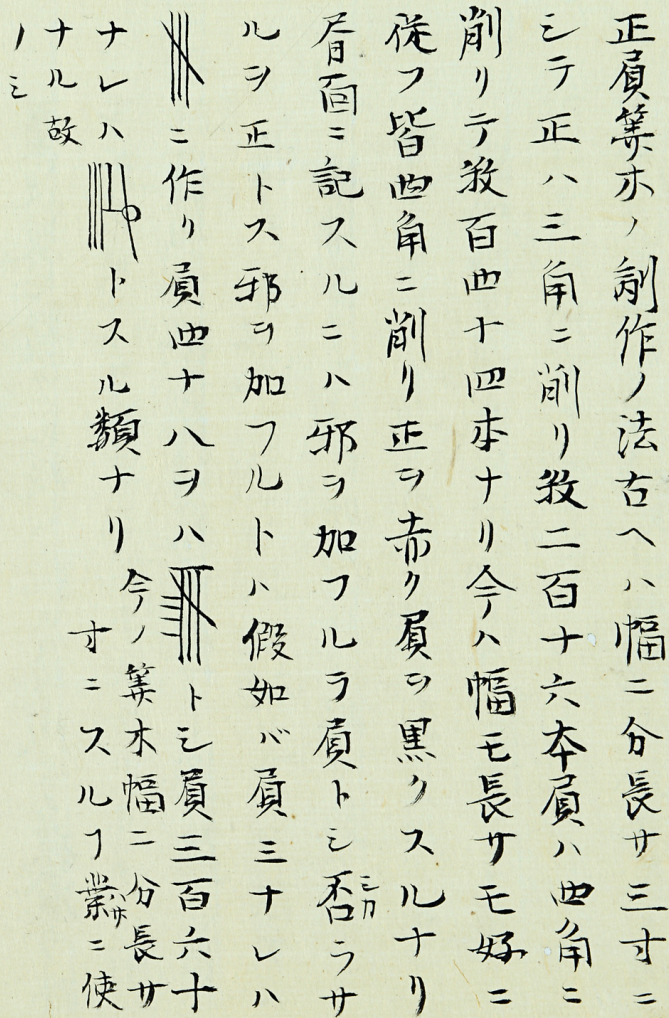 正負筭木ノ制作ノ法古ヘハ幅二分長サ三寸ニ
シテ正ハ三角ニ削リ数二百十六本負ハ四角ニ
削リテ数百四十四本ナリ今ハ幅モ長サモ好ニ
従フ皆四角ニ削リ正ヲ赤ク負ヲ黒クスルナリ
眉面ニ記スルニハ邪ヲ加フルヲ負トシ否ラサ
シカ
ルヲ正トス邪ヲ加フルトハ假如バ負三ナレハ
ニ作リ負四十八ヲハ
トシ負三百六十
ナレハ
トスル類ナリ
今ノ筭木幅二分長サ
寸ニスルフ業ニ使
ワサ
ナル故
ノミ